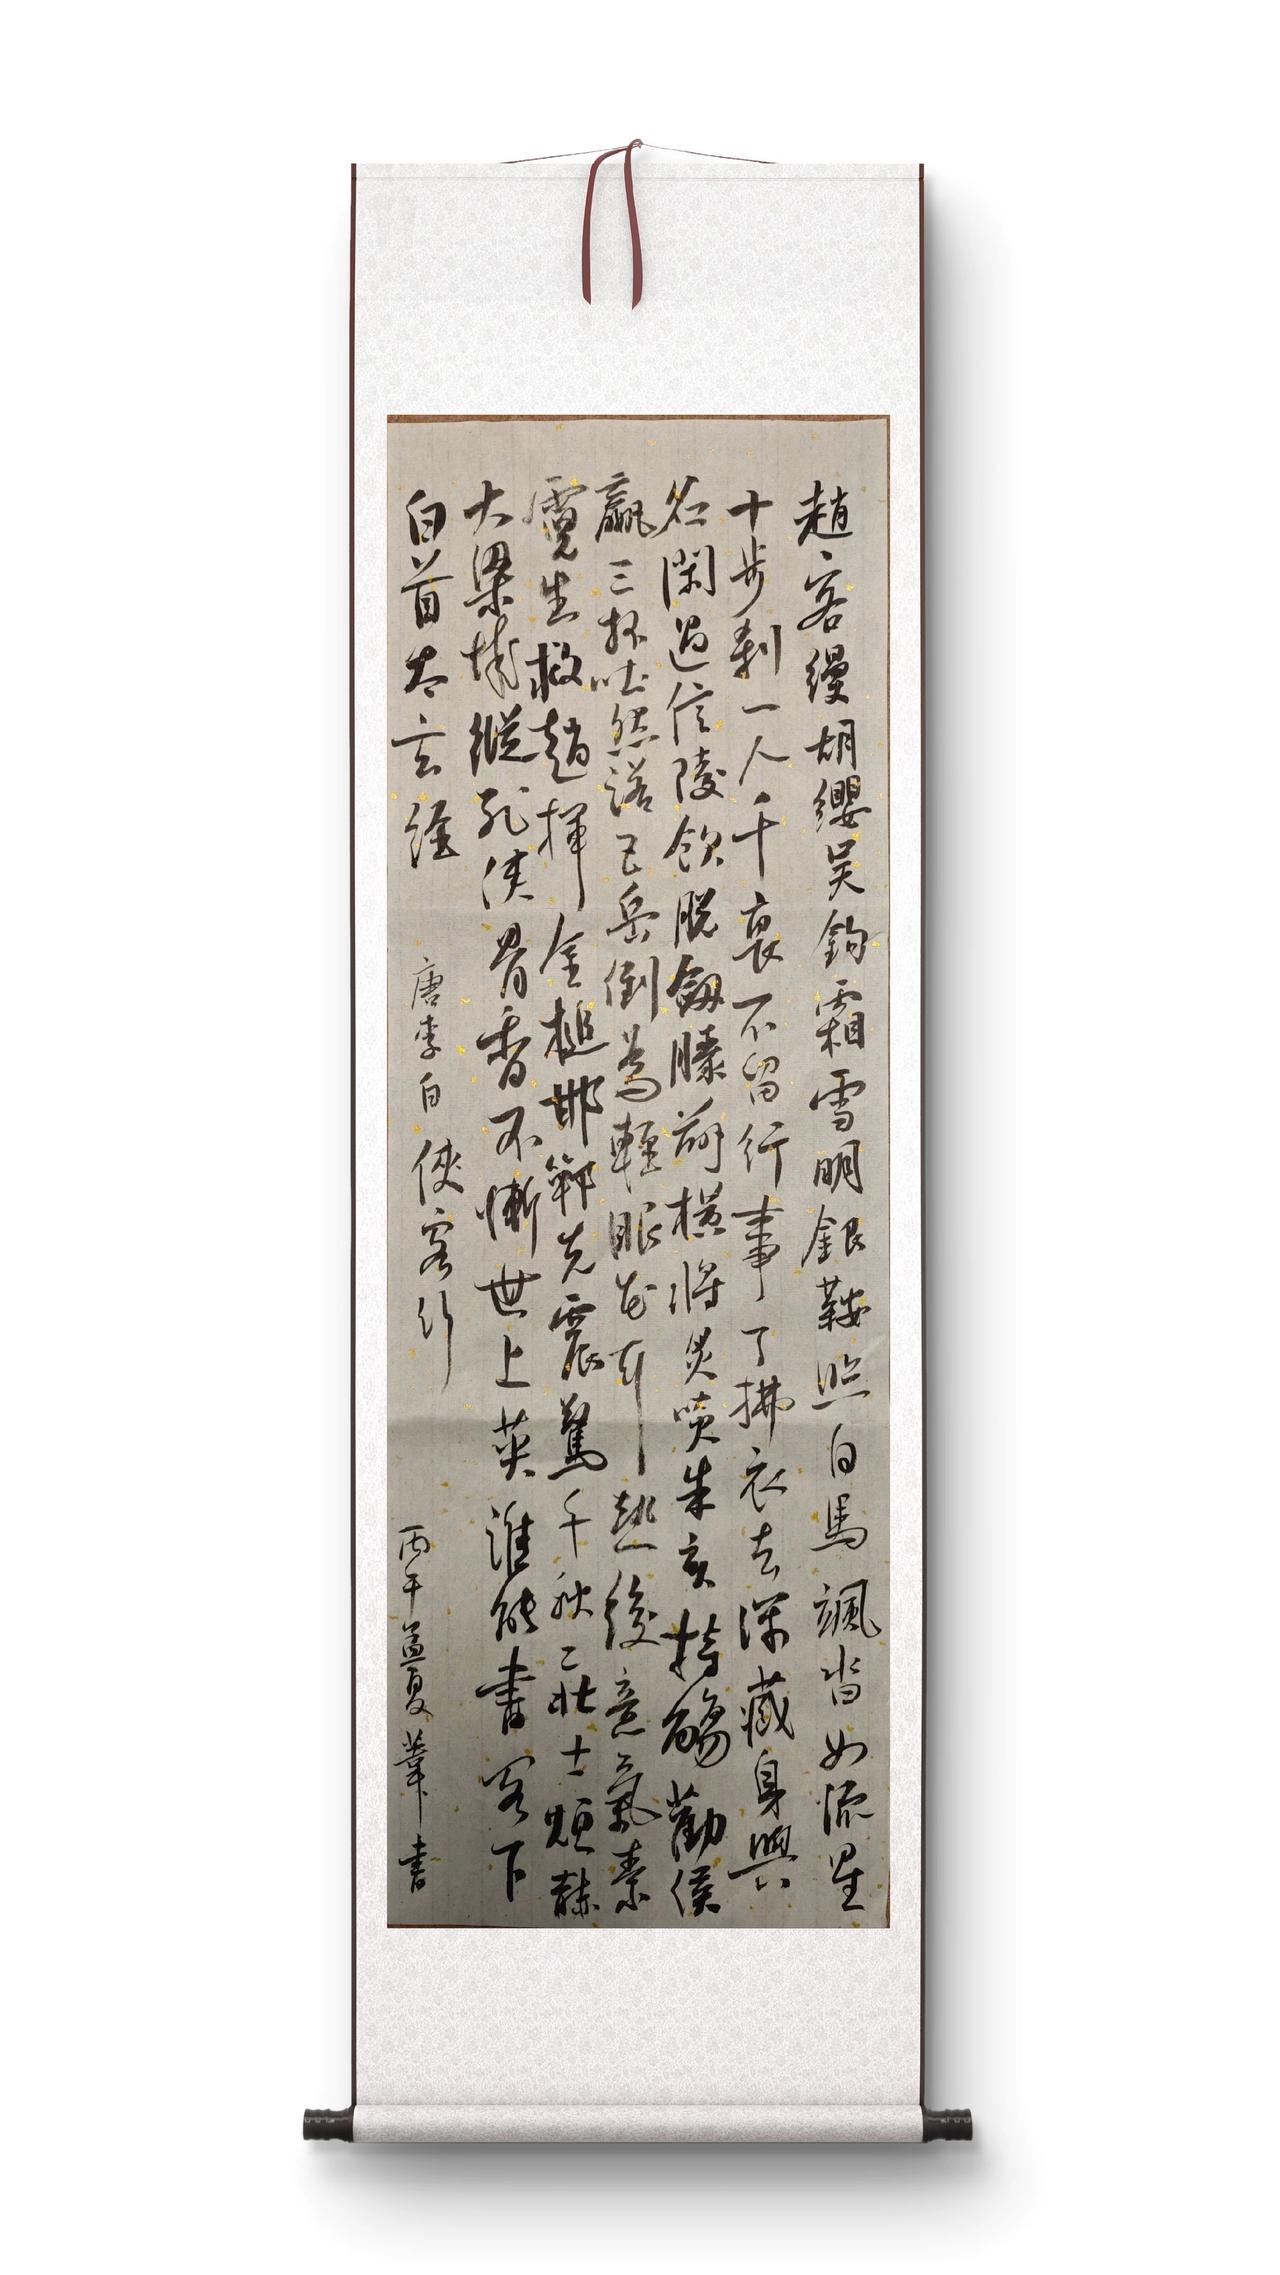 趙客縵胡纓吳鉤霜雪明銀鞍照白馬颯沓如流星
十步剎一人千裏不留行事了拂衣去深藏身與
名閑過信陵飲脫劍膝前橫將炙啖朱亥持觴勸侯
嬴三杯吐然諾五岳倒為輕眼花耳熱後意氣素
霓生救趙揮金槌邯鄲先震驚千秋二壯士烜赫
大梁城縱死俠骨香不慚世上英誰能書閣下
白首太玄經
唐李白俠客行
丙午孟夏葦書